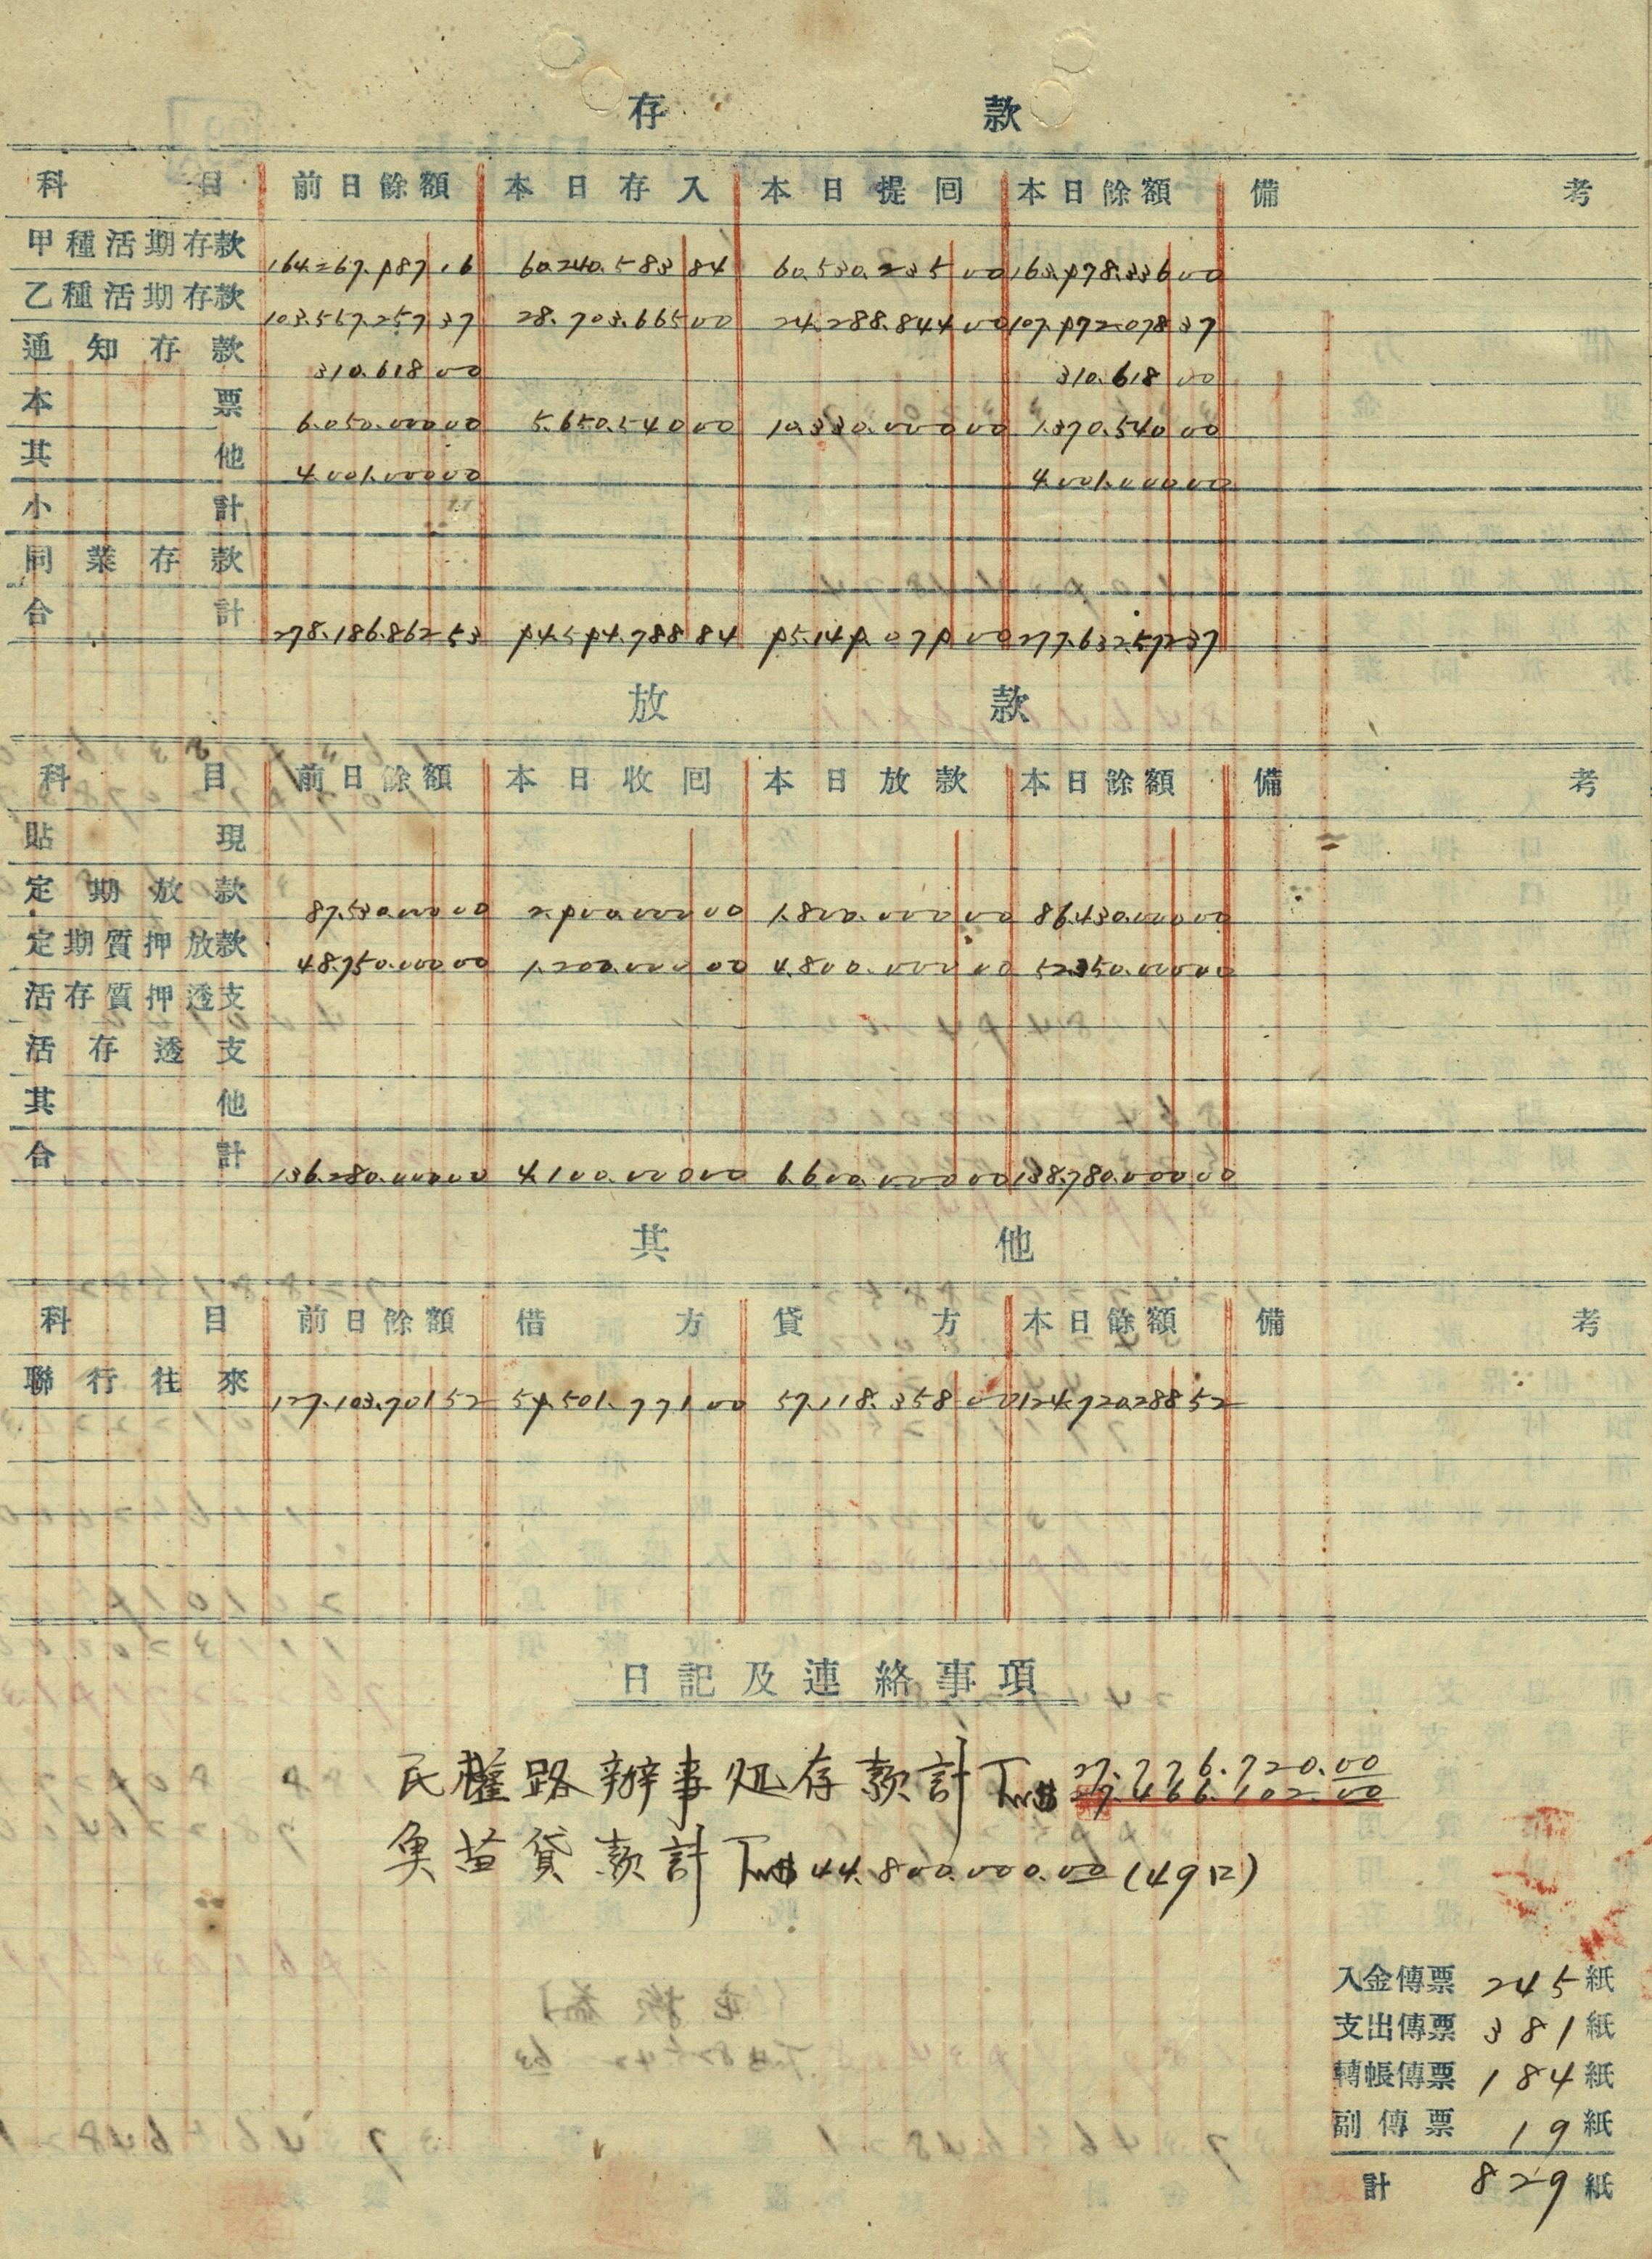 存 款
科目 前日餘額 本日存入 本日提囘 本日餘額 備考
甲種活期存款 164.267.987.16 60.240.583 84 60.530.235 00 163.978.336 00
乙種活期存款 103.557.257 37 28.703.665 00 24.288.844 00 107.972.078 37
通知存款 310.618 00 310.618 00
本票 6.050.000 00 5.650.540 00 10.330.000 00 1.370.540 00
其他 4.001.000 00 4.001.000 00
小計
同業存款
合計 278.186.862 53 94.594.788 84 95.149.079 00 277.632.572 37
放 款
科目 前日餘額 本日收囘 本日放款 本日餘額 備考
貼現
定期放款 87.530.000 00 2.900.000 00 1.800.000 00 86.430.000 00
定期質押放款 48.750.000 00 1.200.000 00 4.800.000 00 52.350.000 00
活存質押透支
活存透支
其他
合計 136.280.000 00 4.100.000 00 6.600.000 00 138.780.000 00
其 他
科目 前日餘額 借方 貸方 本日餘額 備考
聯行往來 127.103.701 52 59.501.771 00 57.118.358 00 124.720.288 52
日記及連絡事項
27.776.720.00
民權路辦事処存款計T$ 27.466.102.00
魚苗貸款計T$ 44.800.000.00 (49口)
入金傳票 245 紙
支出傳票 381 紙
轉帳傳票 184 紙
副傳票 19 紙
計 829 紙